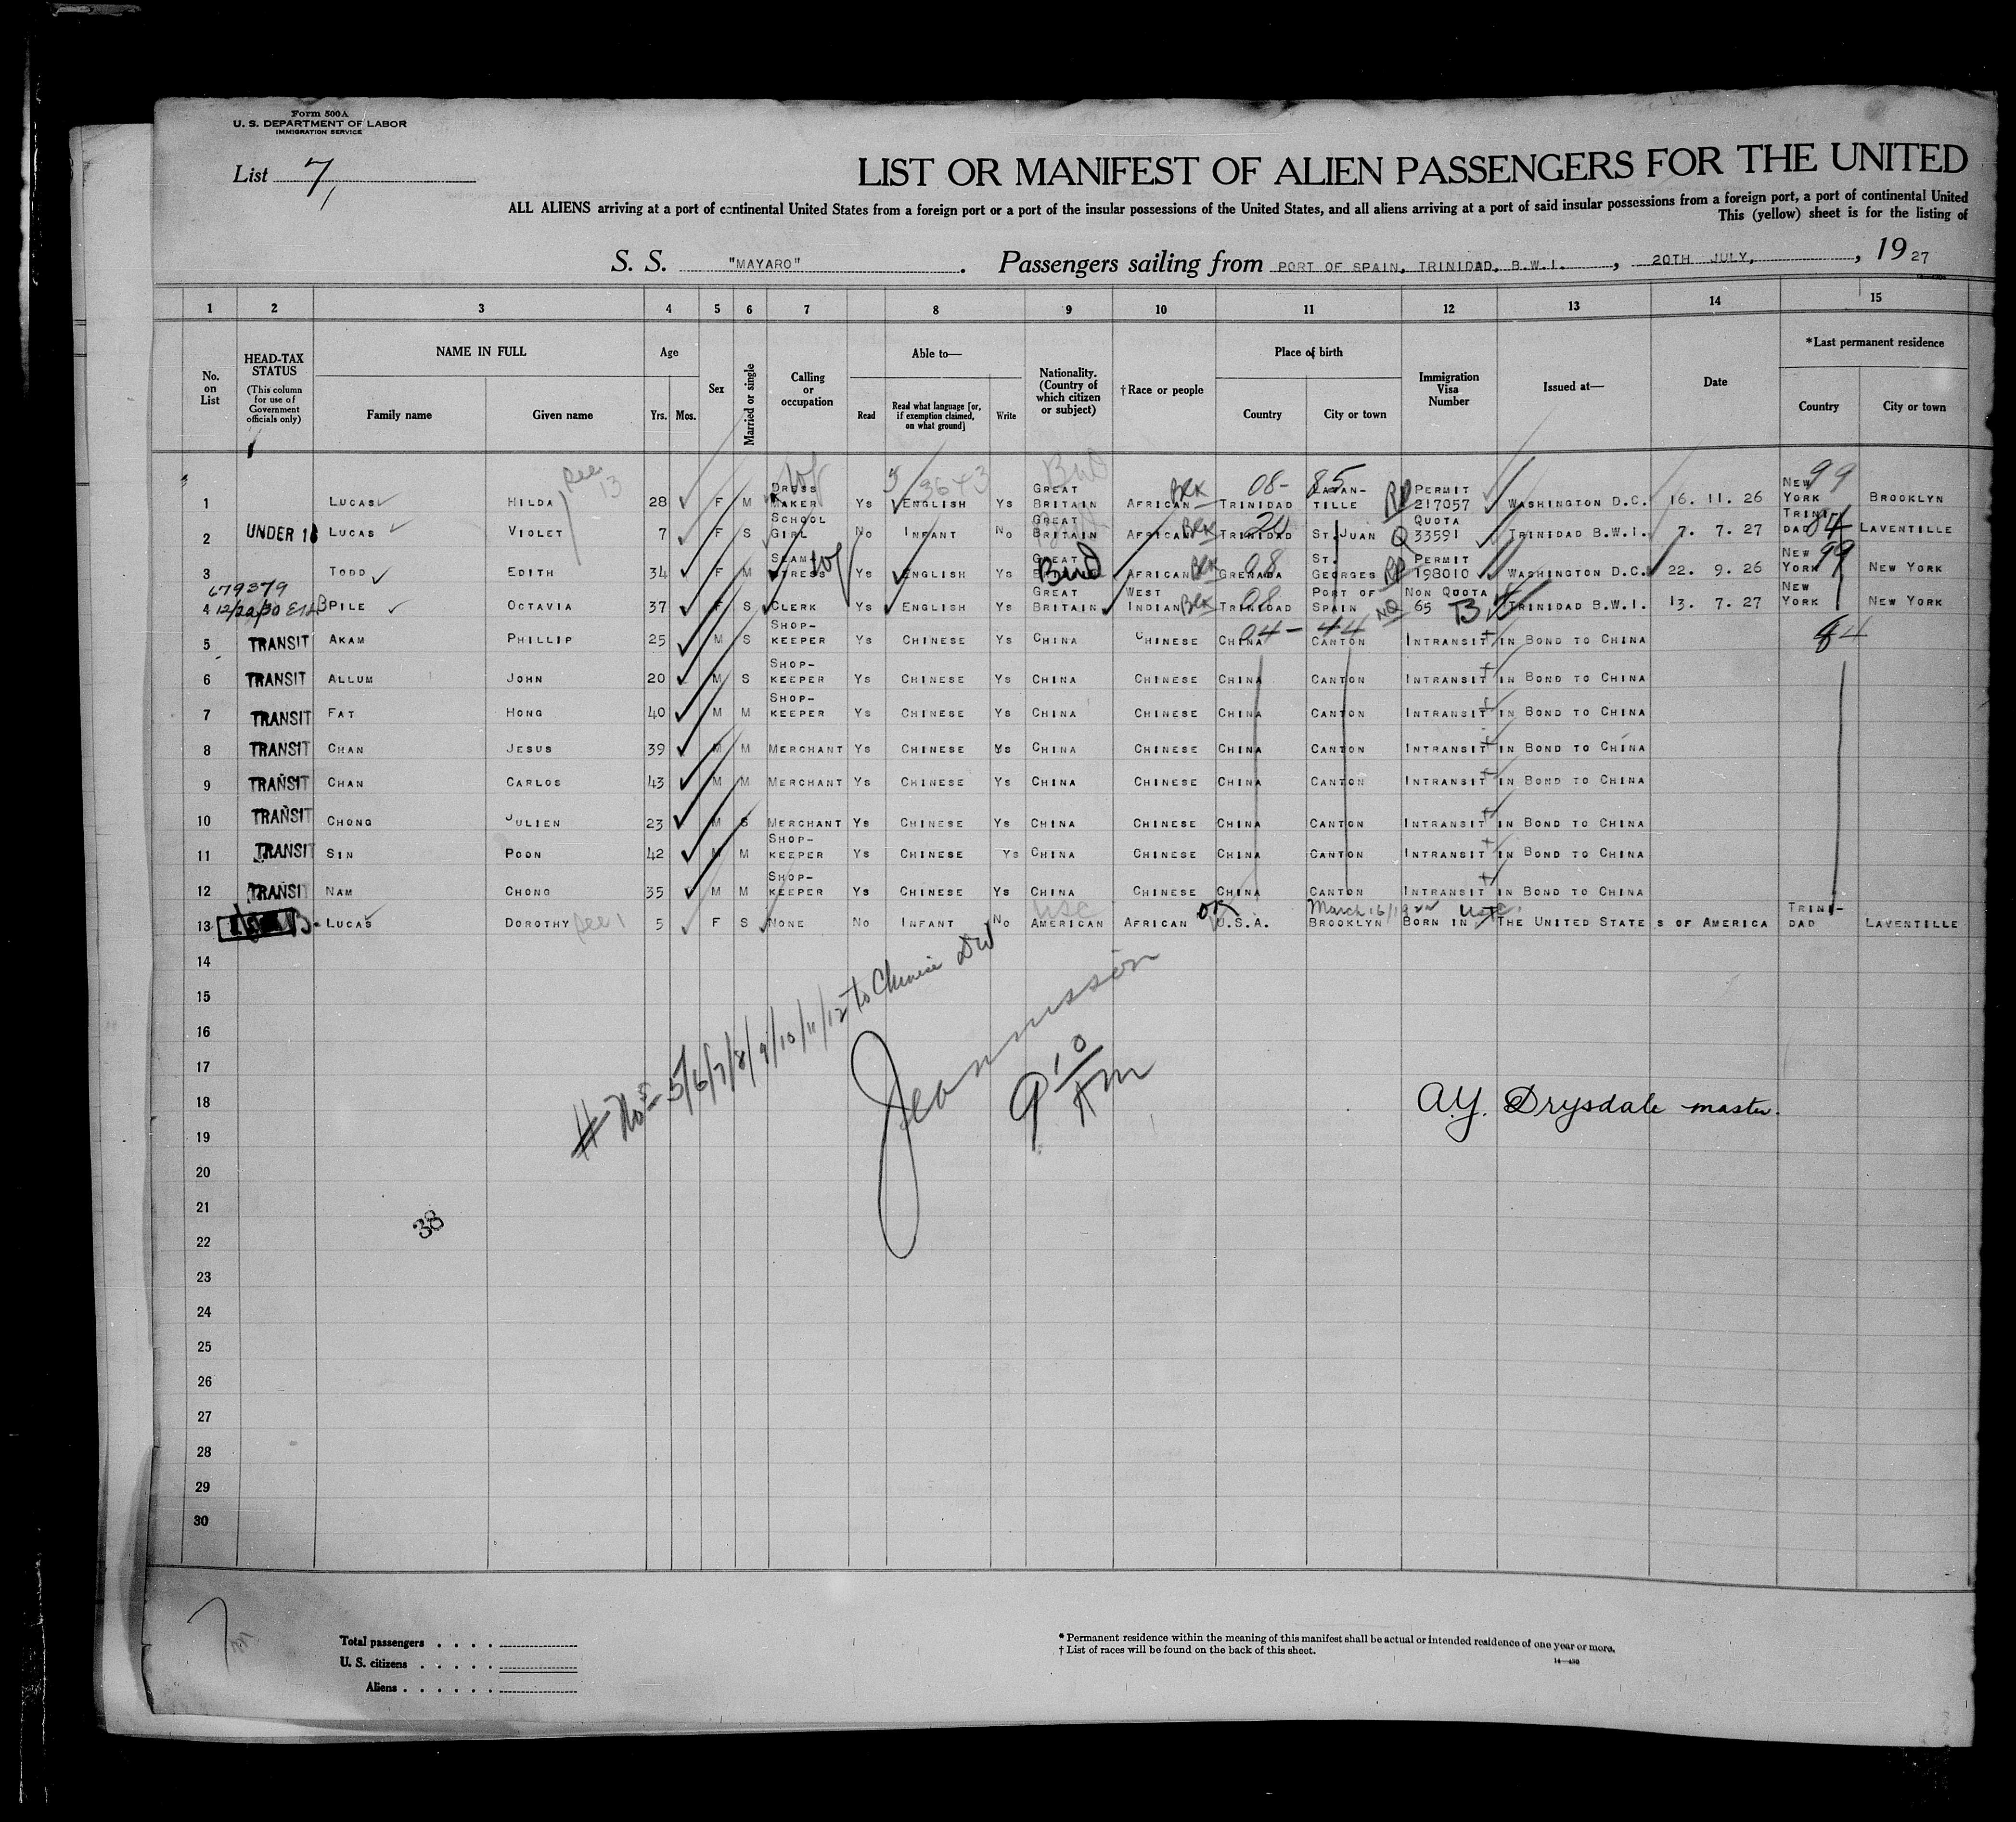 Form 500A
U. S. DEPARTMENT OF LABOR
IMMIGRATION SERVICE
List 7,
LIST OR MANIFEST OF ALIEN PASSENGERS FOR THE UNITED
ALL ALIENS arriving at a port of continental United States from a foreign port or a port of the insular possessions of the United States, and all aliens arriving at a port of said insular possessions from a foreign port, a port of continental United
This (yellow) sheet is for the listing of
S. S. "MAYARO" . Passengers sailing from PORT OF SPAIN, TRINIDAD, B.W.I. , 20TH JULY, , 19 27
1 2 3 4 5 6 7 8 9 10 11 12 13 14 15
No. on List
HEAD-TAX STATUS (This column for use of Government officials only)
NAME IN FULL Family name Given name
Age Yrs. Mos.
Sex
Married or single
Calling or occupation
Able to— Read Read what language [or, if exemption claimed, on what ground] Write
Nationality. (Country of which citizen or subject)
† Race or people
Place of birth Country City or town
Immigration Visa Number
Issued at—
Date
* Last permanent residence Country City or town
1 LUCAS HILDA 28 F M DRESS MAKER YS ENGLISH YS GREAT BRITAIN AFRICAN BLK TRINIDAD 08- 85 TILLE RP PERMIT 217057 WASHINGTON D.C. 16. 11. 26 NEW YORK 99 BROOKLYN
See 13
2 UNDER 16 LUCAS VIOLET 7 F S SCHOOL GIRL NO INFANT NO GREAT BRITAIN AFRICAN BLK TRINIDAD ST. JUAN Q QUOTA 33591 TRINIDAD B.W.I. 7. 7. 27 TRINI-DAD 84 LAVENTILLE
3 TODD EDITH 34 F M SEAM-STRESS YS ENGLISH YS GREAT AFRICAN BLK GRENADA 08 ST. GEORGES RP PERMIT 198010 WASHINGTON D.C. 22. 9. 26 NEW YORK 99 NEW YORK
679379
12/22/30
4 PILE OCTAVIA 37 F S CLERK YS ENGLISH YS GREAT BRITAIN WEST INDIAN BLK TRINIDAD 08 PORT OF SPAIN NQ NON QUOTA 65 TRINIDAD B.W.I. 13. 7. 27 NEW YORK NEW YORK
5 TRANSIT AKAM PHILLIP 25 M S SHOP-KEEPER YS CHINESE YS CHINA CHINESE CHINA 04- 44 CANTON INTRANSIT IN BOND TO CHINA 84
6 TRANSIT ALLUM JOHN 20 M S SHOP-KEEPER YS CHINESE YS CHINA CHINESE CHINA CANTON INTRANSIT IN BOND TO CHINA
7 TRANSIT FAT HONG 40 M M SHOP-KEEPER YS CHINESE YS CHINA CHINESE CHINA CANTON INTRANSIT IN BOND TO CHINA
8 TRANSIT CHAN JESUS 39 M M MERCHANT YS CHINESE YS CHINA CHINESE CHINA CANTON INTRANSIT IN BOND TO CHINA
9 TRANSIT CHAN CARLOS 43 M M MERCHANT YS CHINESE YS CHINA CHINESE CHINA CANTON INTRANSIT IN BOND TO CHINA
10 TRANSIT CHONG JULIEN 23 M S MERCHANT YS CHINESE YS CHINA CHINESE CHINA CANTON INTRANSIT IN BOND TO CHINA
11 TRANSIT SIN POON 42 M M SHOP-KEEPER YS CHINESE YS CHINA CHINESE CHINA CANTON INTRANSIT IN BOND TO CHINA
12 TRANSIT NAM CHONG 35 M M SHOP-KEEPER YS CHINESE YS CHINA CHINESE CHINA CANTON INTRANSIT IN BOND TO CHINA
13 LUCAS DOROTHY See 1 5 F S NONE NO INFANT NO USC AMERICAN AFRICAN OK U.S.A. March 16/1922 BROOKLYN BORN IN THE UNITED STATES OF AMERICA TRINI-DAD LAVENTILLE
14
15
16
# Nos 5/6/7/8/9/10/11/12 to Chinese Div
17
9 10 AM
18 A.Y. Drysdale master.
19
20
21
38
22
23
24
25
26
27
28
29
30
7
Total passengers . . . .
U. S. citizens . . . . .
Aliens . . . . . .
* Permanent residence within the meaning of this manifest shall be actual or intended residence of one year or more.
† List of races will be found on the back of this sheet.
14—430